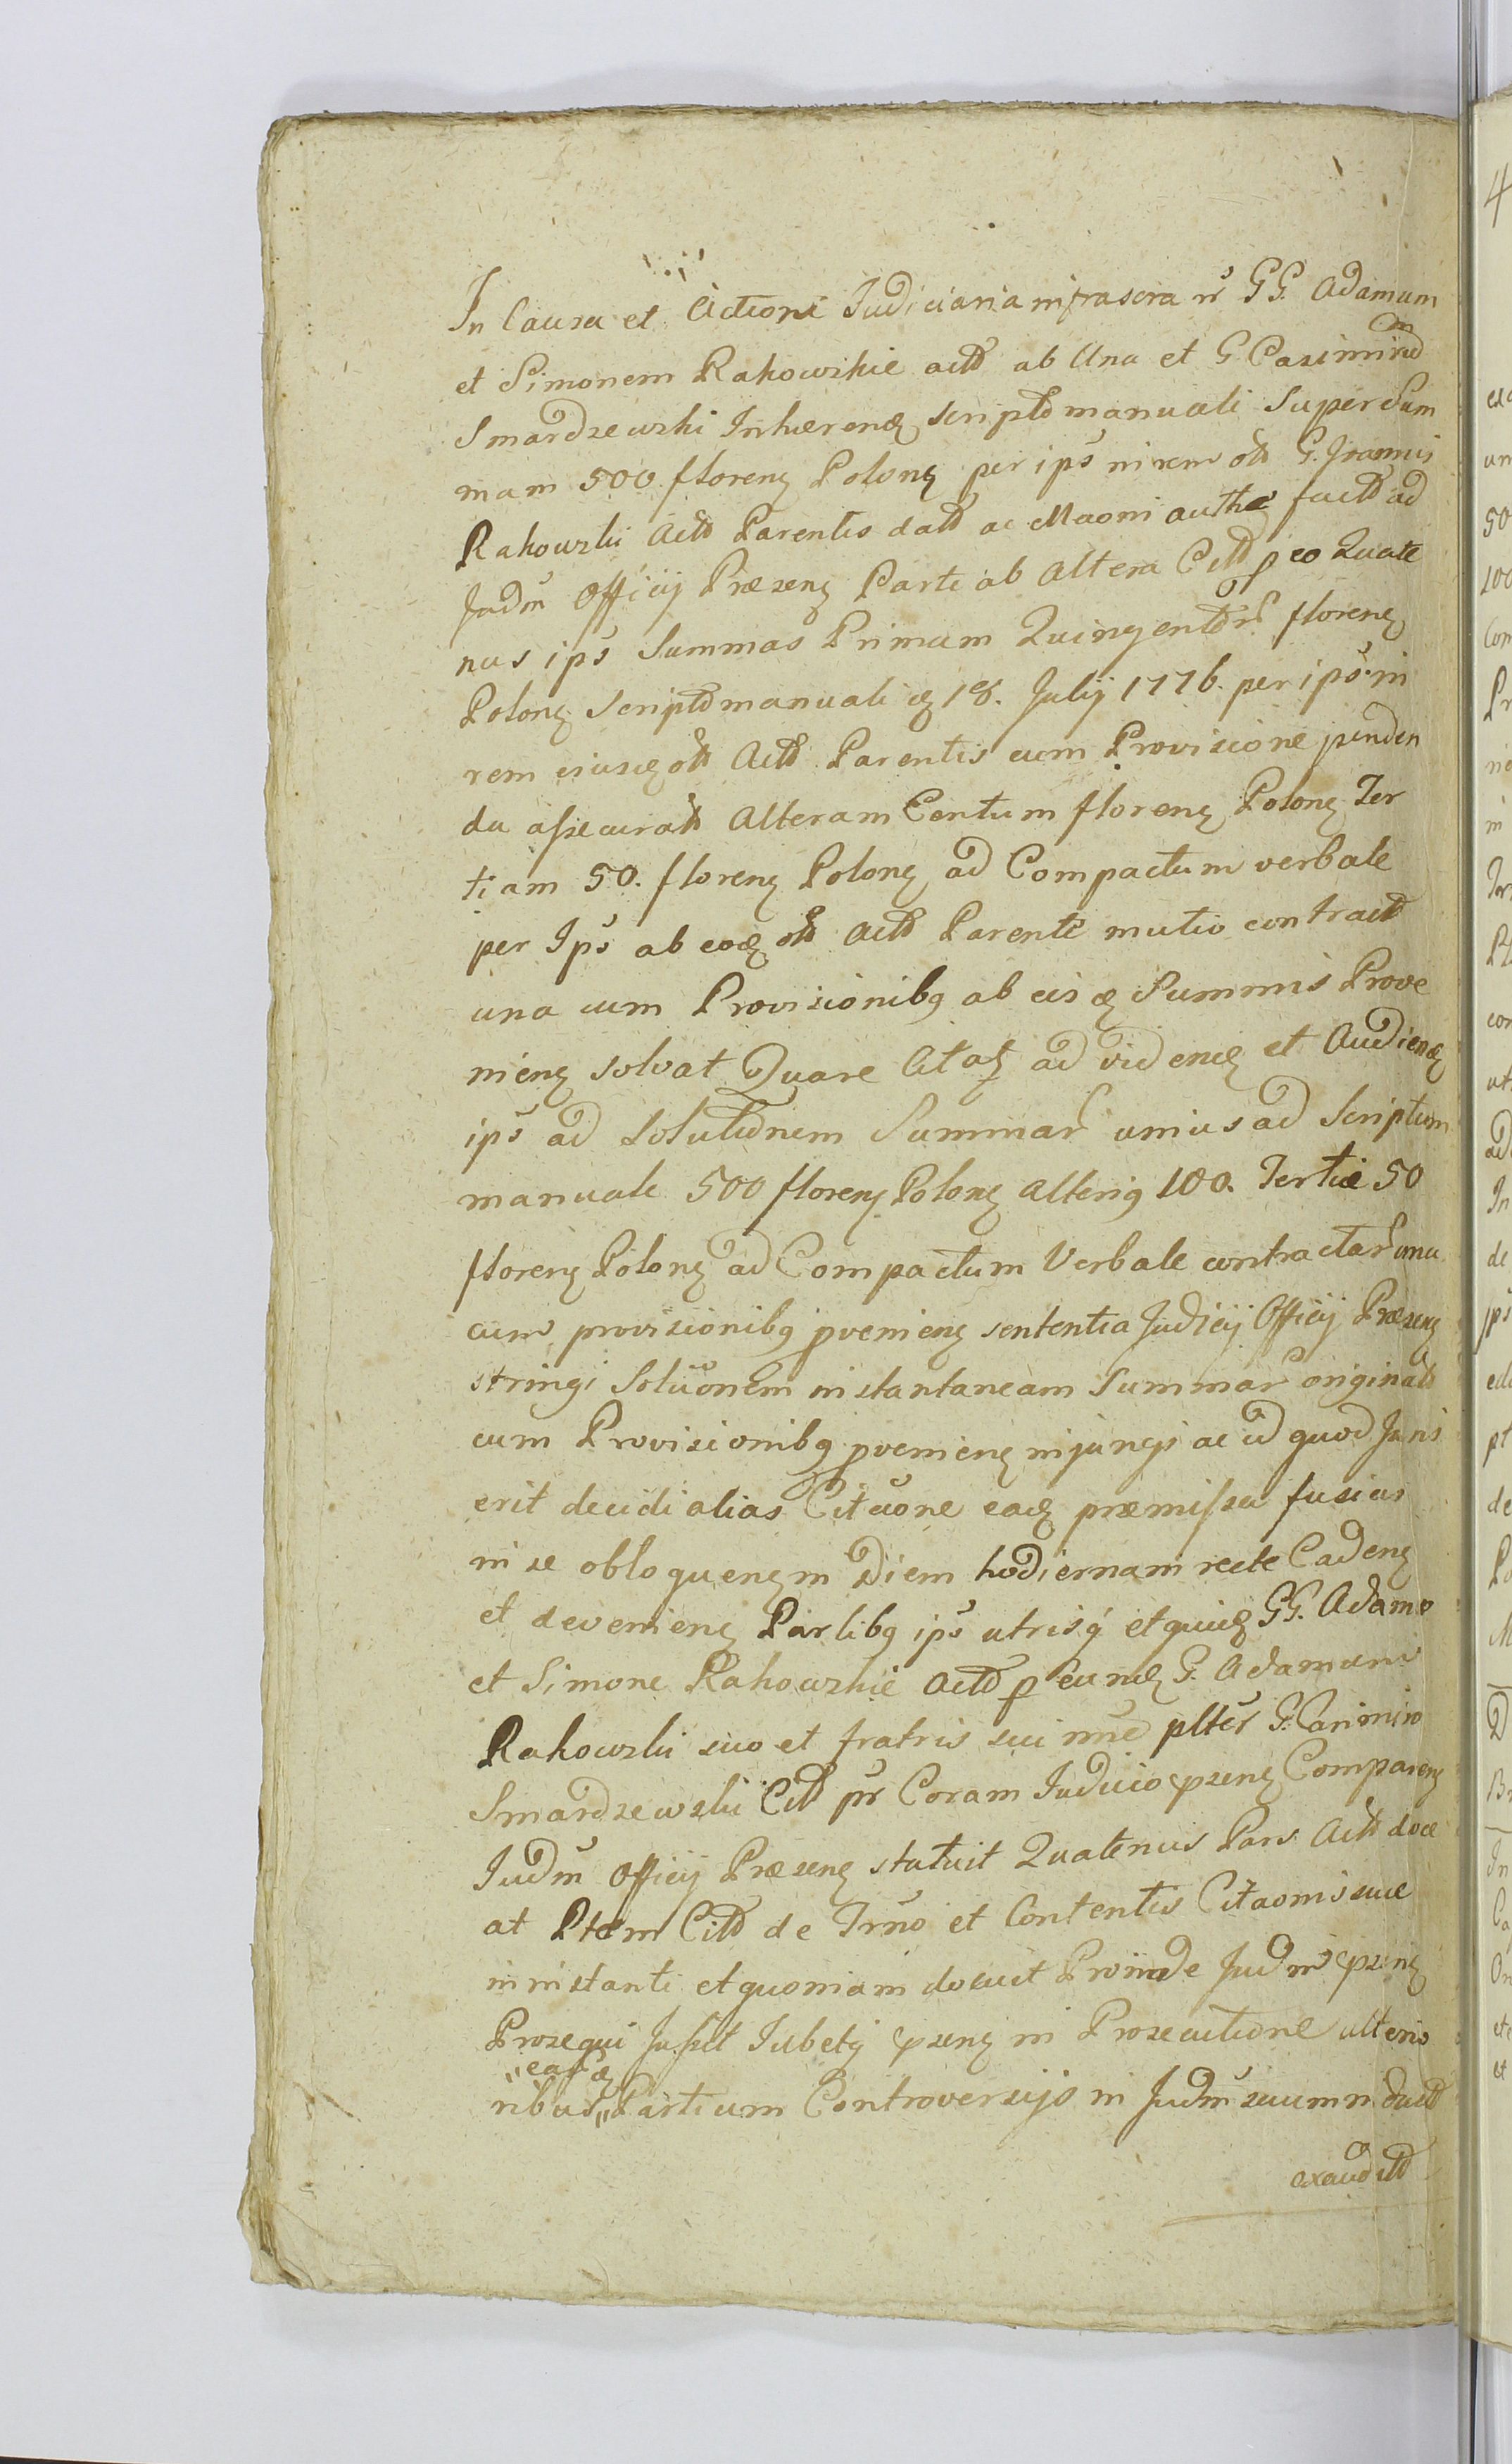 In Causa et Actione Judiciaria infrascra nr GG. Adamum
et Simonem Rakowskie actō ab Una et G Casimirū
Smardzewski Inhærendȩ scriptō manuali Super Sum
mam 500 florenȩ Polonȩ per ipš in rem olō G. Joannis
Rakowski Actō Parentis datō ac Maoni authæ factō ad
Judm̄ Officij Præsenȩ Parte ab Altera Citō eo Quate
nus ipš Summas Primam Quingentōr florenȩ
Polonȩ Scriptō manuali ȩ 18. Julij 1776. per ipš in
rem eiusȩ olō Actō Parentis cum Provisione penden
da assecuratō Alteram Centum florenȩ Polonȩ Ter
tiam 50. florenȩ Polonȩ ad Compactum verbale
per Ipš ab eoȩ olō Actō Parente mutuo contractō
una cum Provisionibȝ ab eis ȩ Summis Prove
nienȩ solvat Quare Citatȩ ad videndȩ et Audiendȩ
ipš ad Solutionem Summar unius ad Scriptum
manuale 500 florenȩ Polonȩ Alterius 100. Tertiæ 50
florenȩ Polonȩ ad Compactum Verbale contractar una
cum provisionibȝ pvenienȩ sententia Judicij Officij Præsenȩ
stringi Soluōnem instantaneam Summar originalō
cum Provisionibȝ pvenienȩ injungi ac id quod Juris
erit decidi alias Citaōne eaȩ præmissa fusius
in se obloquenȩ in Diem hodiernam recte Cadenȩ
et devenienȩ Partibȝ ipš utrisq́ et quidȩ GG. Adamo
et Simone Rakowskie Actō p eundȩ G. Adamum
Rakowski suo et fratris sui nn̄e pltēr G. Casimiro
Smardzewski Citō pr Coram Judicio pzenȩ Comparenȩ
Judm̄ Officij Præsenȩ statuit Quatenus Pars Actō doce
at Ptem Citō de Trn̄o et Contentis Citaonis suæ
in instanti et quoniam docuit Proinde Judm̄ pzenȩ
Prosequi Jussit Jubetȝ pzenȩ in Prosecutione ulterio
"earȩ
ribus" Partium Controversijs in Judm̄ suum inductō
exauditō